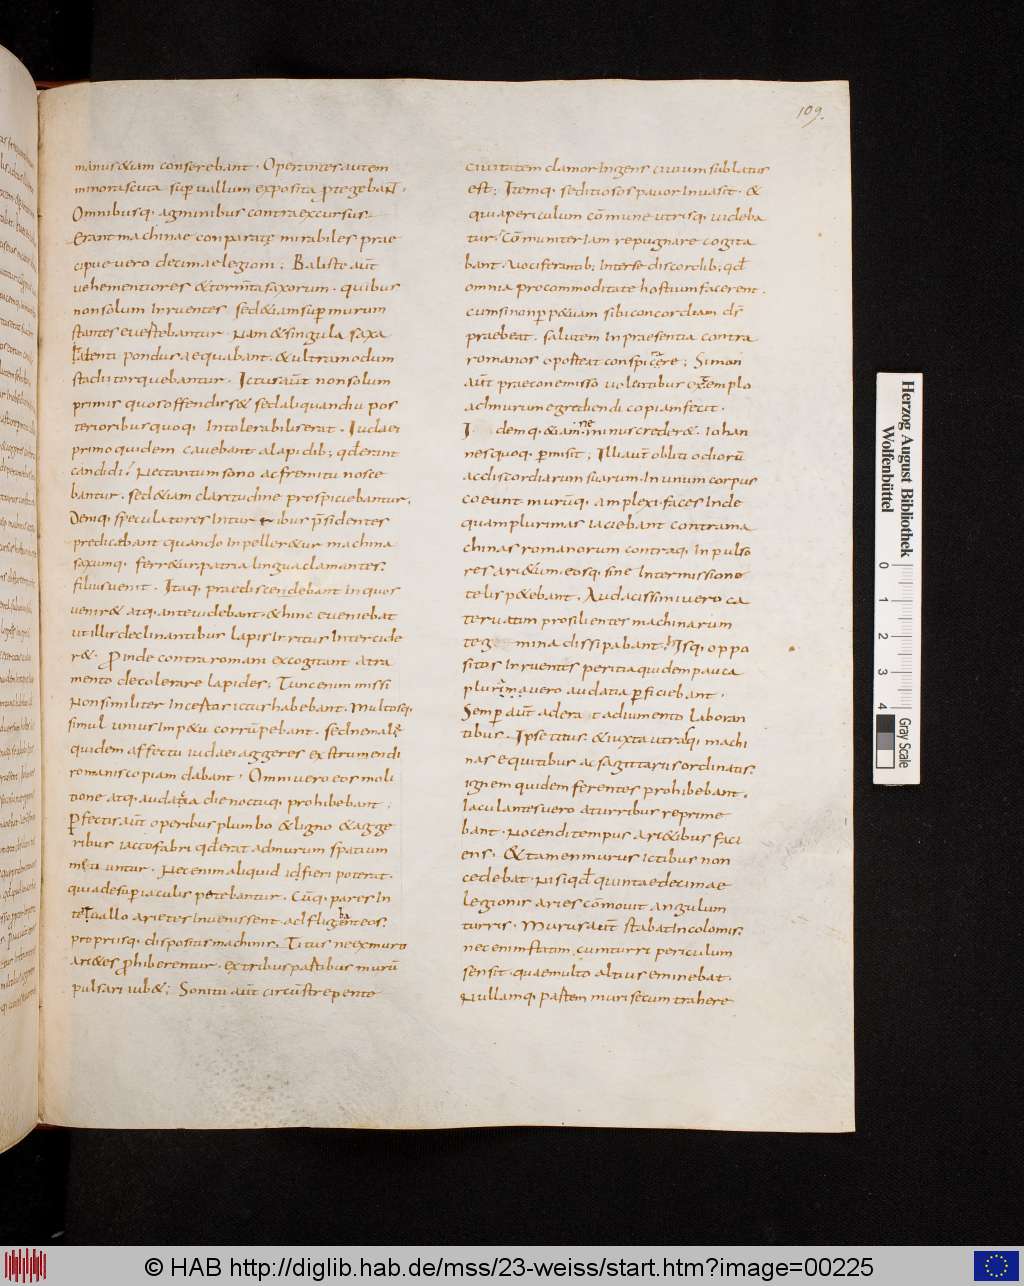 109.
manus &iam conserebant · Operantes autem
minora scuta sup uallum exposita ptegebant ·
Omnibusq· agminibus contra excursus
erant machinae conparatę mirabiles prae
cipue uero decimae legioni ; Baliste aūt
uehementiores & tormta saxorum · quibus
non solum inruentes sed &iam sup murum
stantes euertebantur · Nam & singula saxa
talenti pondus aequabant · & ultra modum
stadii torquebantur · Ictus aūt non solum
primis quos offendiss& sed aliquandiu pos
terioribus quoq· intolerabilis erat · Iudaei
primo quidem cauebant a lapidib; qđ erant
candidi / Nec tantum sono ac fremitu nosce
bantur · sed &iam claritudine prospiciebantur ·
Deniq· speculatores in turribus psidentes
predicabant quando inpeller&ur machina
saxumq· ferr&ur patria lingua clamantes ·
filius uenit · Itaq· praediscendebant in quos
uenir& atq· ante uidebant · & hinc eueniebat
ut illis declinantibus lapis inritus intercide
r& · Proinde contra romani excogitant atra
mento decolerare lapides ; Tunc enim missi
Non similiter incertos ictus habebant · Multosq·
simul unius imp&u corrūpebant · sed ne male
quidem affectu iudaei aggeres exstruendi
romanis copiam dabant · Omni uero eos moli
tione atq· audatia die noctuq· prohibebant ;
Pfectis aūt operibus plumbo & ligno & agge
ribus iacto fabri qđ erat ad murum spatium
metiuntur · Nec enim aliquid id fieri poterat ·
quia desup iaculis petebantur · Cūq· pares in
teruallo arietes inuenissent adflugenteos ·
propriisq· dispositis machinis · Titus ne ex muro
ari&es phiberentur · ex tribus partibus murū
pulsari iub& ; Sonitu aūt circūstrepente
ciuitatem clamor ingens ciuium sublatus
est ; Itemq· seditiosos pauor inuasit · &
quia periculum cōmune utrisq· uideba
tur / Cōmuniter iam repugnare cogita
bant · Nociferantib; inter se discordib; qđ
omnia pro commoditate hostium facerent ·
cum si non pp&uam sibi concordiam ds
praebeat · salutem in praesentia contra
romanos oporteat conspicere ; Simon
aūt praecone misso uolentibus ex templo
ad murum egrediendi copiam fecit ·
Idemq· &iam ne minus creder& · Iohan
nes quoq· pmisit ; Illi aūt obliti odiorū
ac discordiarum suarum · In unum corpus
coeunt · murūq· amplexi · faces inde
quam plurimas iaciebant contra ma
chinas romanorum contraq· inpulso
res ari&um · eosq· sine intermissione
telis p&ebant · Audacissimi uero ca
teruatim prosilientes machinarum
tegmina dissipabant / Hisq· oppo
sitos inruentes peritia quidem pauca
plurima uero audatia pficiebant ·
Semp aūt aderat adiumento laboran
tibus · Ipse titus · & iuxta utrasq· machi
nas equitibus ac sagittariis ordinatis ·
ignem quidem ferentes prohibebant ·
Iaculantes uero a turribus reprime
bant · Nocendi tempus ari&ibus faci
ens · & tamen murus ictibus non
cedebat · Nisi qđ quintaedecimae
legionis aries cōmouit angulum
turris · Murus aūt stabat incolomis ·
nec enim statim cum turri periculum
sensit · quae multo altius eminebat ·
Nullamq· partem muri secum trahere
Herzog August Bibliothek
Wolfenbüttel
0 1 2 3 4
Gray Scale
© HAB http://diglib.hab.de/mss/23-weiss/start.htm?image=00225